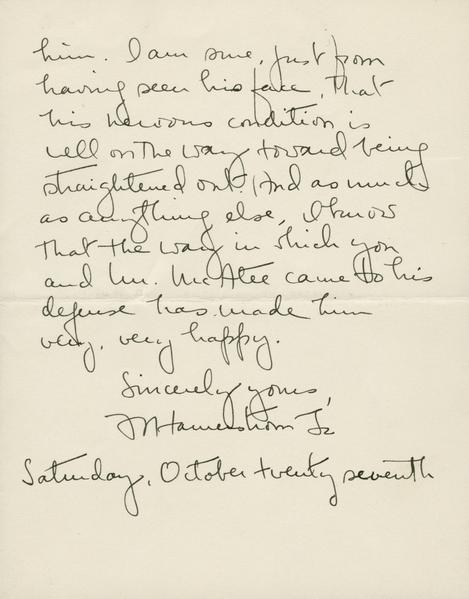 him. I am sure, just from
having seen his face, that
his nervous condition is
well on the way toward being
straightened out. And as much
as anything else, I know
that the way in which you
and Mr. McAtee came to his
defense has made him
very, very happy.
Sincerely yours,
FN Hamerstrom Jr
Saturday, October twenty seventh